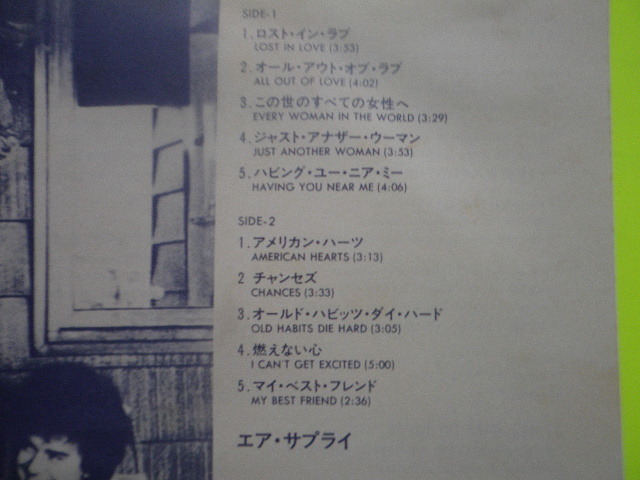 SIDE-1
1. ロスト・イン・ラブ
LOST IN LOVE (3:53)
2. オール・アウト・オブ・ラブ
ALL OUT OF LOVE (4:02)
3. この世のすべての女性へ
EVERY WOMAN IN THE WORLD (3:29)
4. ジャスト・アナザー・ウーマン
JUST ANOTHER WOMAN (3:53)
5. ハビング・ユー・ニア・ミー
HAVING YOU NEAR ME (4:06)
SIDE-2
1. アメリカン・ハーツ
AMERICAN HEARTS (3:13)
2 チャンセズ
CHANCES (3:33)
3. オールド・ハビッツ・ダイ・ハード
OLD HABITS DIE HARD (3:05)
4. 燃えない心
I CAN'T GET EXCITED (5:00)
5. マイ・ベスト・フレンド
MY BEST FRIEND (2:36)
エア・サプライ